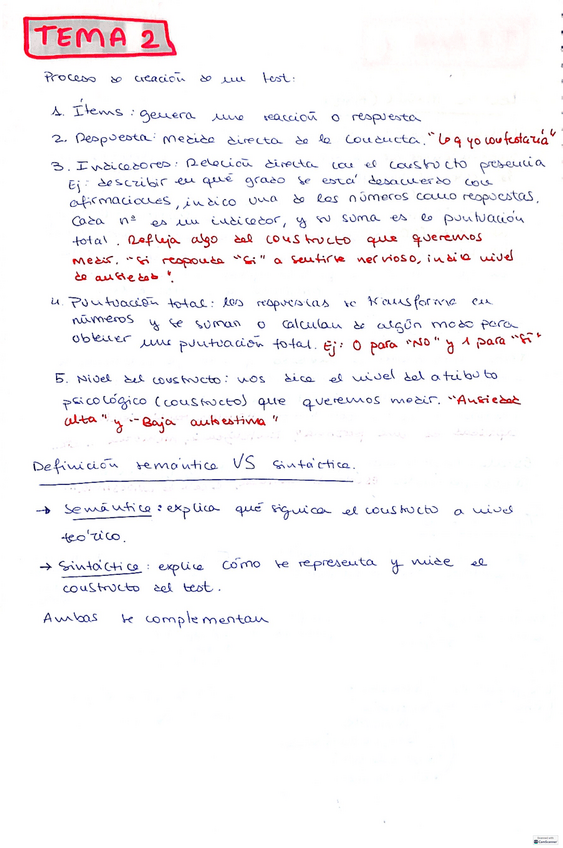 TEMA 2
Proceso de creación de un test:
1. Ítems: genera una reacción o respuesta
2. Respuesta: Medida directa de la conducta. "Lo q yo contestaría"
3. Indicadores: Relación directa con el constructo presencia
Ej: describir en qué grado se está desacuerdo con
afirmaciones, indico una de los números como respuestas.
Cada nº es un indicador, y su suma es la puntuación
total. Refleja algo del constructo que queremos
medir. "Si responde "Si" a sentirse nervioso, indica nivel
de ansiedad".
4. Puntuación total: las respuestas se transforma en
números y se suman o calculan de algún modo para
obtener una puntuación total. Ej: 0 para "NO" y 1 para "Sí"
5. Nivel del constructo: nos dice el nivel del atributo
psicológico (constructo) que queremos medir. "Ansiedad
alta" y "Baja autoestima"
Definición semántica VS sintáctica.
→ Semántica: explica qué siguica el constructo a nivel
teórico.
→ Sintáctica: explica cómo se representa y mide el
constructo del test.
Ambas se complementan
CamScanner